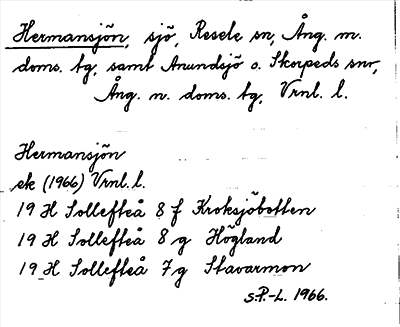 Hermansjön, sjö, Resele sn, Ång. m.
doms. tg, samt Anundsjö o. Skorpeds snr,
Ång. n. doms. tg, Vrnl. l.
Hermansjön
ek (1966) Vrnl. l.
19 H Sollefteå 8 f Kroksjöbotten
19 H Sollefteå 8 g Högland
19 H Sollefteå 7 g Stavarmon
S.P.-L. 1966.